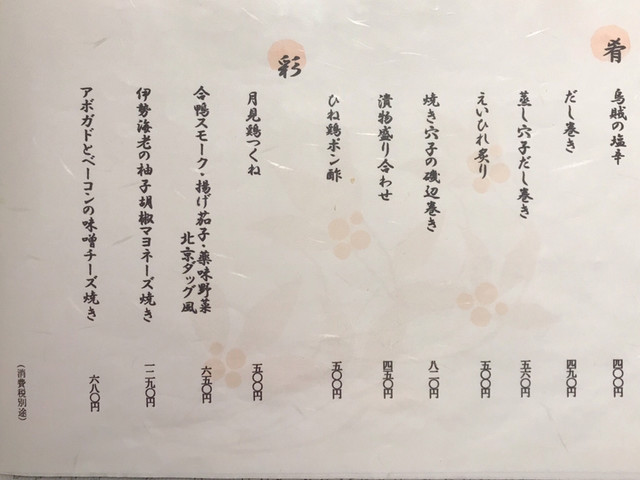 肴
烏賊の塩辛
四〇〇円
だし巻き
四九〇円
蒸し穴子だし巻き
五六〇円
えいひれ炙り
五〇〇円
焼き穴子の磯辺巻き
八二〇円
漬物盛り合わせ
四五〇円
ひね鶏ポン酢
五〇〇円
彩
月見鶏つくね
五〇〇円
合鴨スモーク・揚げ茄子・薬味野菜
北京ダック風
六五〇円
伊勢海老の柚子胡椒マヨネーズ焼き
一二九〇円
アボガドとベーコンの味噌チーズ焼き
六八〇円
（消費税別途）